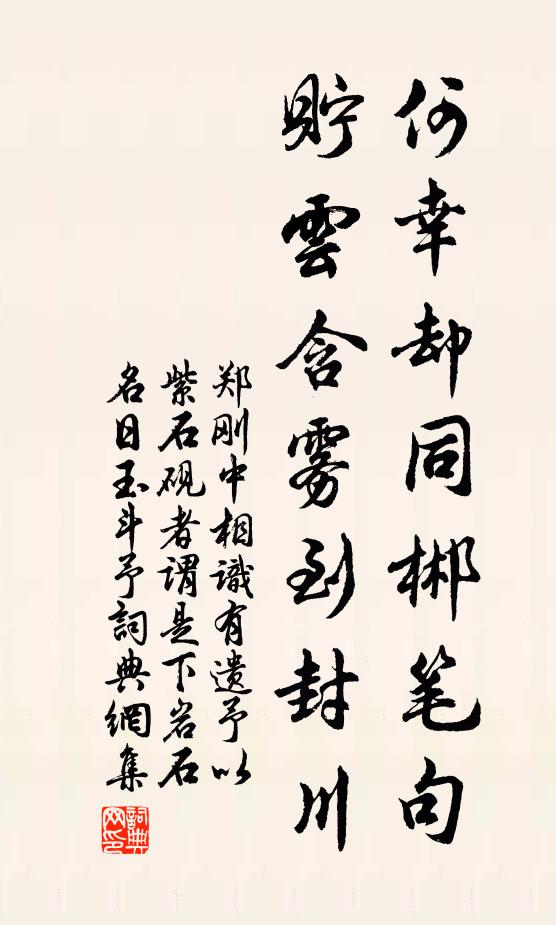 何幸却同郴笔句
貯雲含雾到封川
郑刚中相識有遗予以
紫石砚者謂是下岩石
名曰玉斗予詞典網集
詞典网印